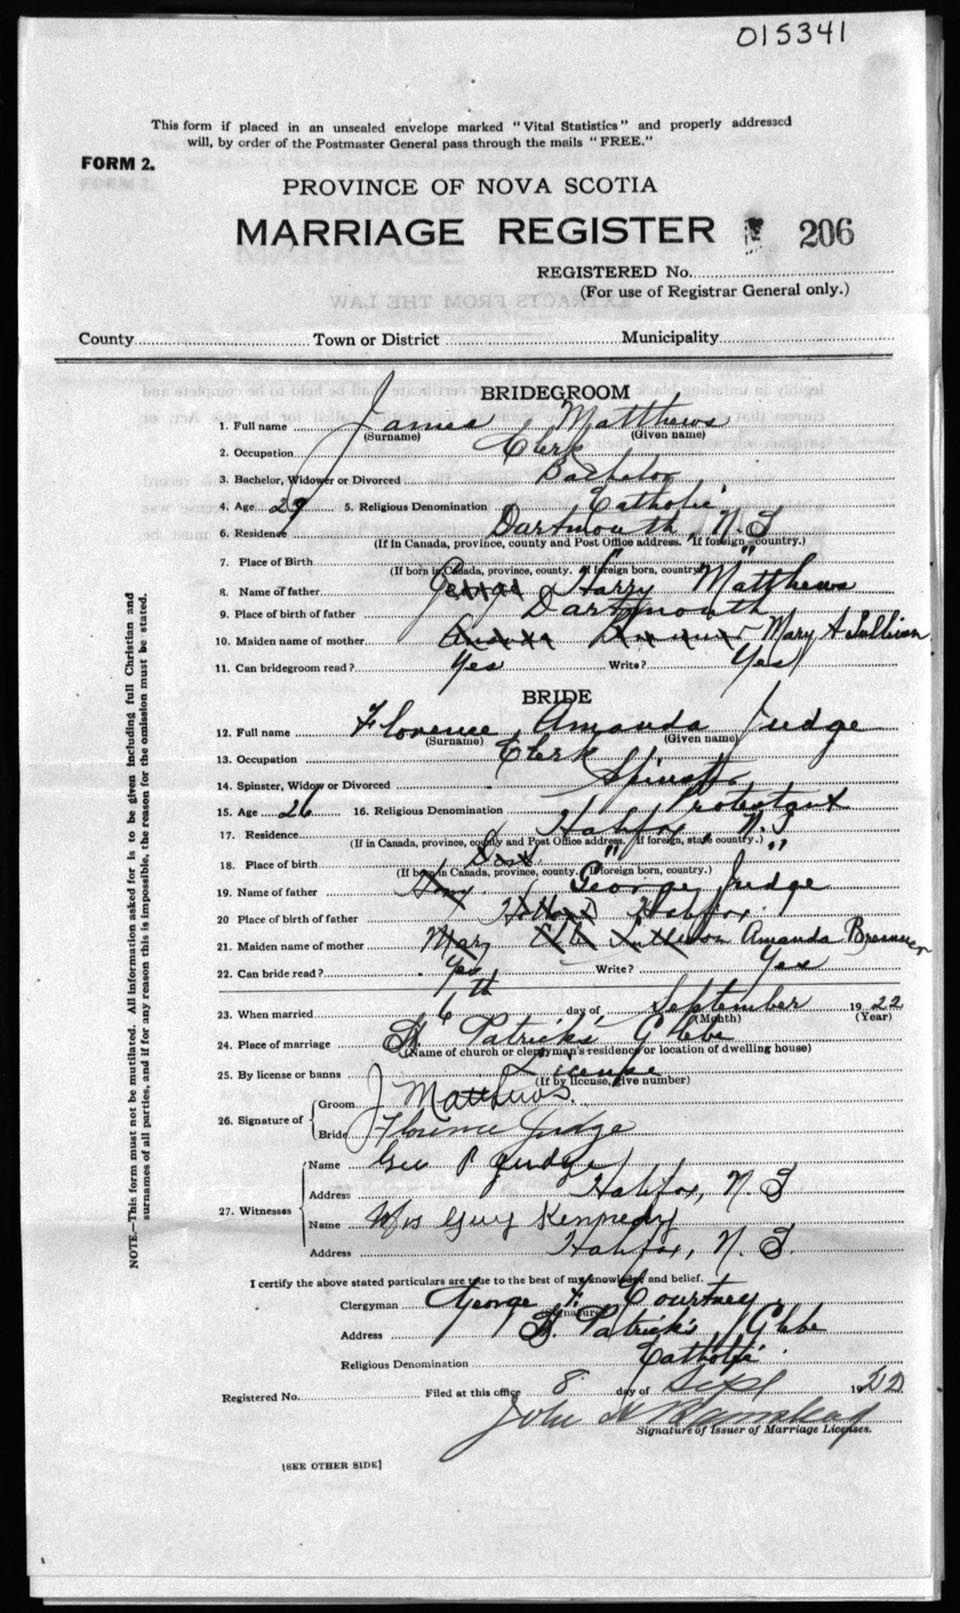 015341
This form if placed in an unsealed envelope marked "Vital Statistics" and properly addressed
will, by order of the Postmaster General pass through the mails "FREE."
FORM 2.
PROVINCE OF NOVA SCOTIA
MARRIAGE REGISTER 206
REGISTERED No.
(For use of Registrar General only.)
County Town or District Municipality
BRIDEGROOM
1. Full name James Matthews
(Surname) (Given name)
2. Occupation Clerk
3. Bachelor, Widower or Divorced Bachelor
4. Age 29 5. Religious Denomination Catholic
6. Residence Dartmouth, N.S
(If in Canada, province, county and Post Office address. If foreign country.)
7. Place of Birth " "
(If born in Canada, province, county. If foreign born, country)
8. Name of father George Harry Matthews
9. Place of birth of father Dartmouth
10. Maiden name of mother Mary A Sullivan
11. Can bridegroom read? Yes Write? Yes
BRIDE
12. Full name Florence Amanda Judge
(Surname) (Given name)
13. Occupation Clerk
14. Spinster, Widow or Divorced Spinster
15. Age 26 16. Religious Denomination Protestant
17. Residence Halifax, N.S
(If in Canada, province, county and Post Office address. If foreign, state country.)
18. Place of birth Dart " "
(If born in Canada, province, county. If foreign born, country.)
19. Name of father Harry George Judge
20 Place of birth of father Halifax
21. Maiden name of mother Mary Amanda Bremner
22. Can bride read? Yes Write? Yes
23. When married 6th day of September 1922
(Month) (Year)
24. Place of marriage St. Patrick's Glebe
(Name of church or clergyman's residence or location of dwelling house)
25. By license or banns License
(If by license, give number)
26. Signature of
Groom J Matthews.
Bride Florence Judge
27. Witnesses
Name Geo P Judge
Address Halifax, N.S
Name Mrs Guy Kennedy
Address Halifax, N.S.
I certify the above stated particulars are true to the best of my knowledge and belief.
Clergyman George F. Courtney
(Signature)
Address St. Patrick's Glebe
Religious Denomination Catholic.
Registered No. Filed at this office 8 day of Sept 1922
John
Signature of Issuer of Marriage Licenses.
[SEE OTHER SIDE]
NOTE.—This form must not be mutilated. All information asked for is to be given including full Christian and
surnames of all parties, and if for any reason this is impossible, the reason for the omission must be stated.